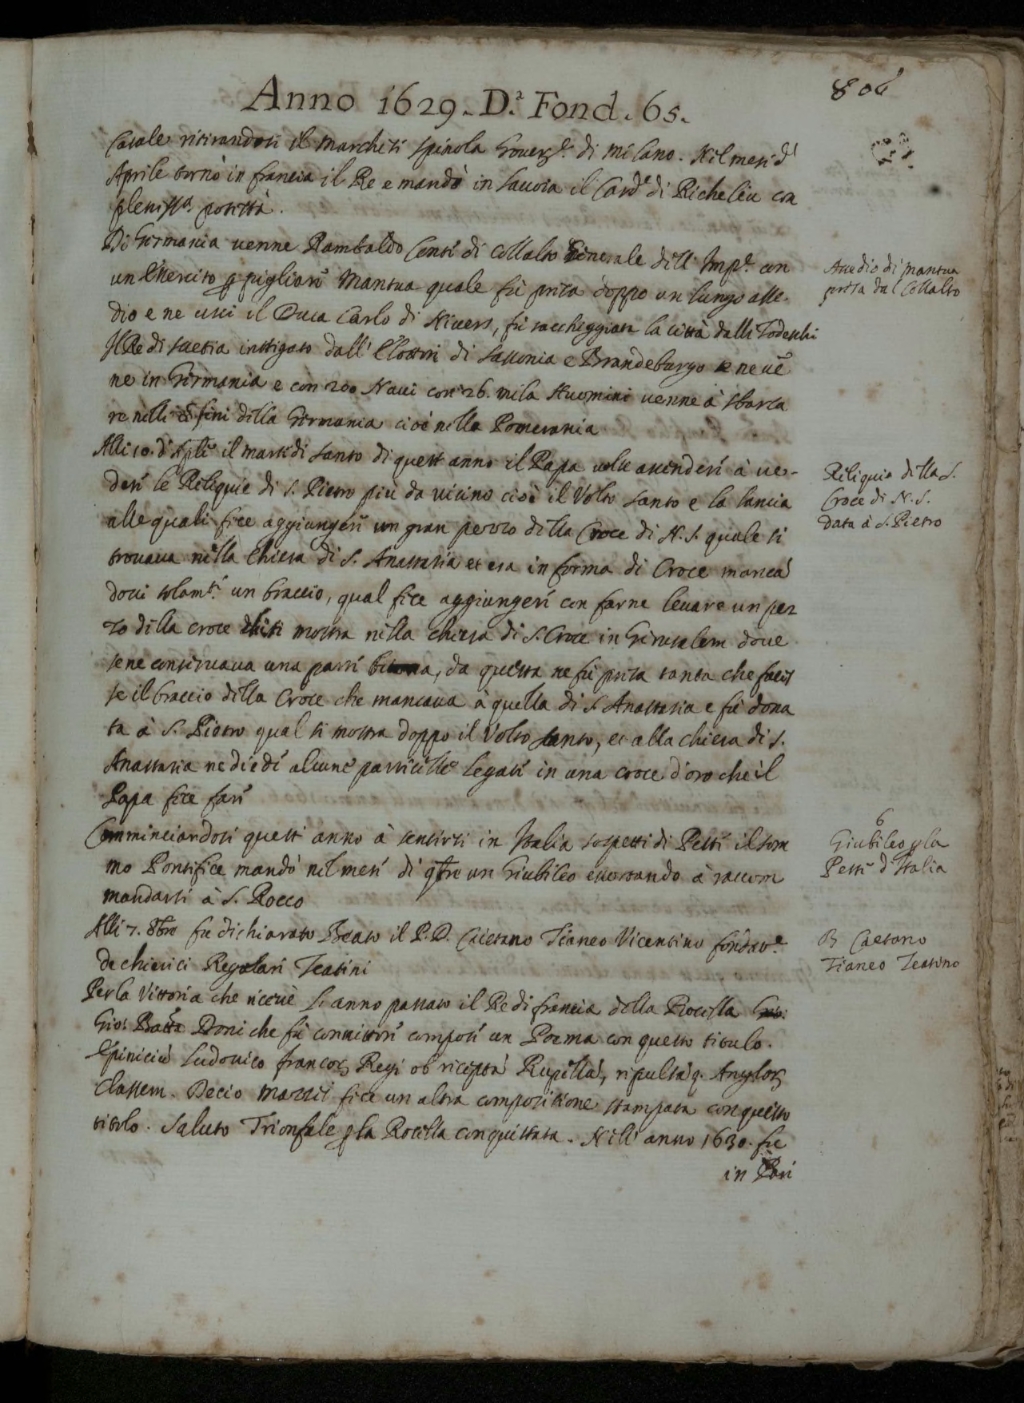 806
Anno 1629. D.ª Fond. 65.
Casale ritirandosi il Marchesi Spinola Gover.re di Milano. Nel mese d'
Aprile tornò in francia il Re e mandò in Savoia il Card.e di Richeliu con
pleniss.a potestà.
Di Germania venne Rambaldo Conte di Collalto Generale dell' Imp.e con
un Esercito per pigliare Mantua quale fù presa doppo un lungo asse
dio e ne uscì il Duca Carlo di Nivers, fù saccheggiata la città dalli Todeschi
Assedio di Mantua
presa dal Collalto
Il Re di Suetia instigato dall' Elettori di Sassonia e Brandeburgo se ne vē
ne in Germania e con 200 Navi con 26. mila Huomini venne à sbarca
re nelli cōfini della Germania cioè nella Pomerania
Alli 10. d'Aple il martedi santo di quest anno il Papa volse attendere à ve-
dere le Reliquie di S. Pietro più da vicino cioè il Volto Santo e la lancia
alle quali fece aggiungere un gran pezzo della Croce di N. S. quale si
trovava nella Chiesa di S. Anastasia et era in forma di Croce manca
dovi solam.te un braccio, qual fece aggiungere con farne levare un pez
zo della croce che si mostra nella chiesa di S. Croce in Gerusalem dove
se ne conservava una parte buona, da questa ne fù presa tanta che faces
se il braccio della Croce che mancava à quella di S. Anastasia e fù dona
ta à S. Pietro qual si mostra doppo il Volto Santo, et alla chiesa di S.
Anastasia ne diede alcune particelle legate in una croce d'oro che il
Papa fece fare
Reliquia della S.
Croce di N. S.
data à S. Pietro
Comminciandosi quest anno à sentirsi in Italia sospetti di Peste il som
mo Pontefice mandò nel mese di 9bre un Giubileo essortando à raccom
mandarsi à S. Rocco
6
Giubileo p la
Peste d'Italia
Alli 7. 8bre fu dichiarato Beato il P. D. Caietano Tianeo Vicentino fondat.e
de chierici Regolari Teatini
B. Caetano
Tianeo Teatino
Per la Vittoria che ricevè l'anno passato il Re di francia della Rocella
Gio: Batta Doni che fù convittore compose un Poema con questo titulo.
Epiniciū Ludovico francor. Regi ob receptā Rupellā, repulsāq. Anglor.
Classem. Decio Mazzei fece un altra compositione stampata con questo
titolo. Saluto Trionfale p la Rocella conquistata. Nell' anno 1630. fu
in Pari